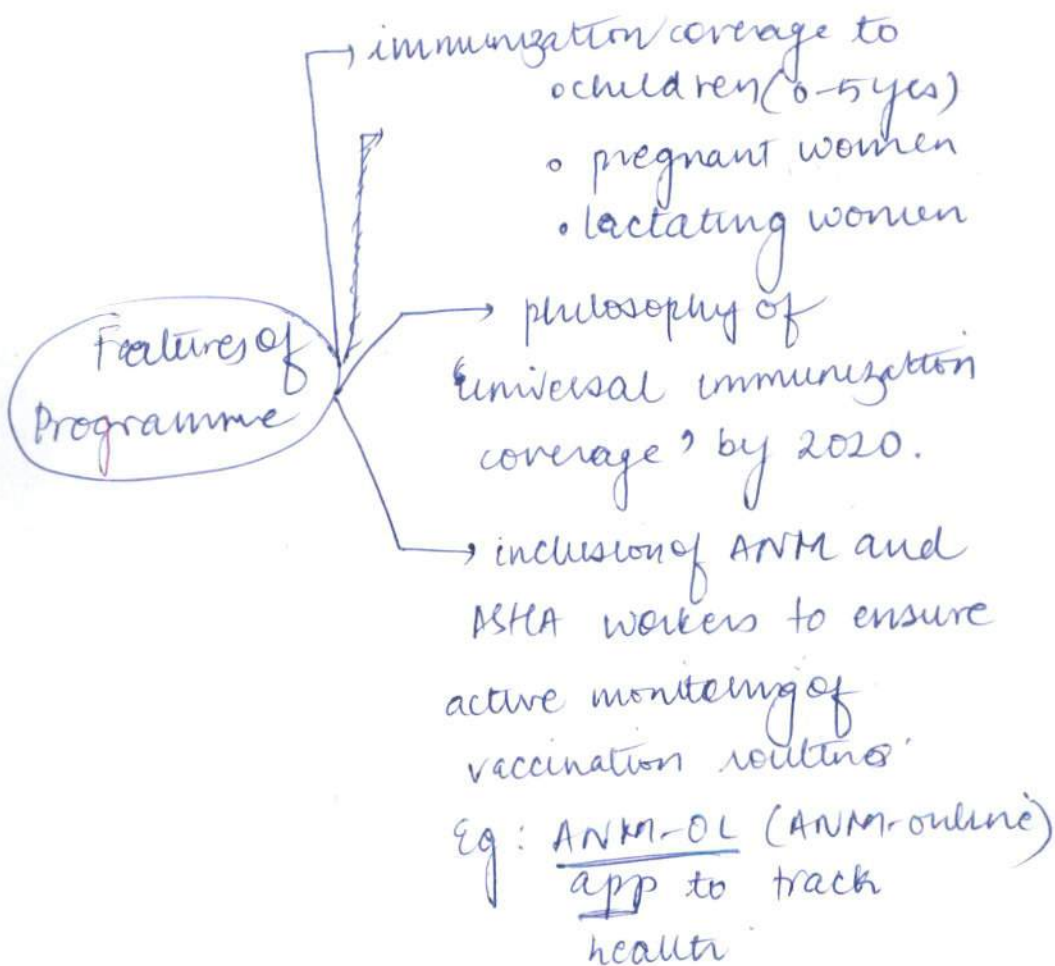 immunization coverage to
• children (0-5 yes)
• pregnant women
• lactating women
Features of
Programme
philosophy of
'universal immunization
coverage' by 2020.
inclusion of ANM and
ASHA workers to ensure
active monitoring of
vaccination routines
Eg: ANM-OL (ANM-online)
app to track
health